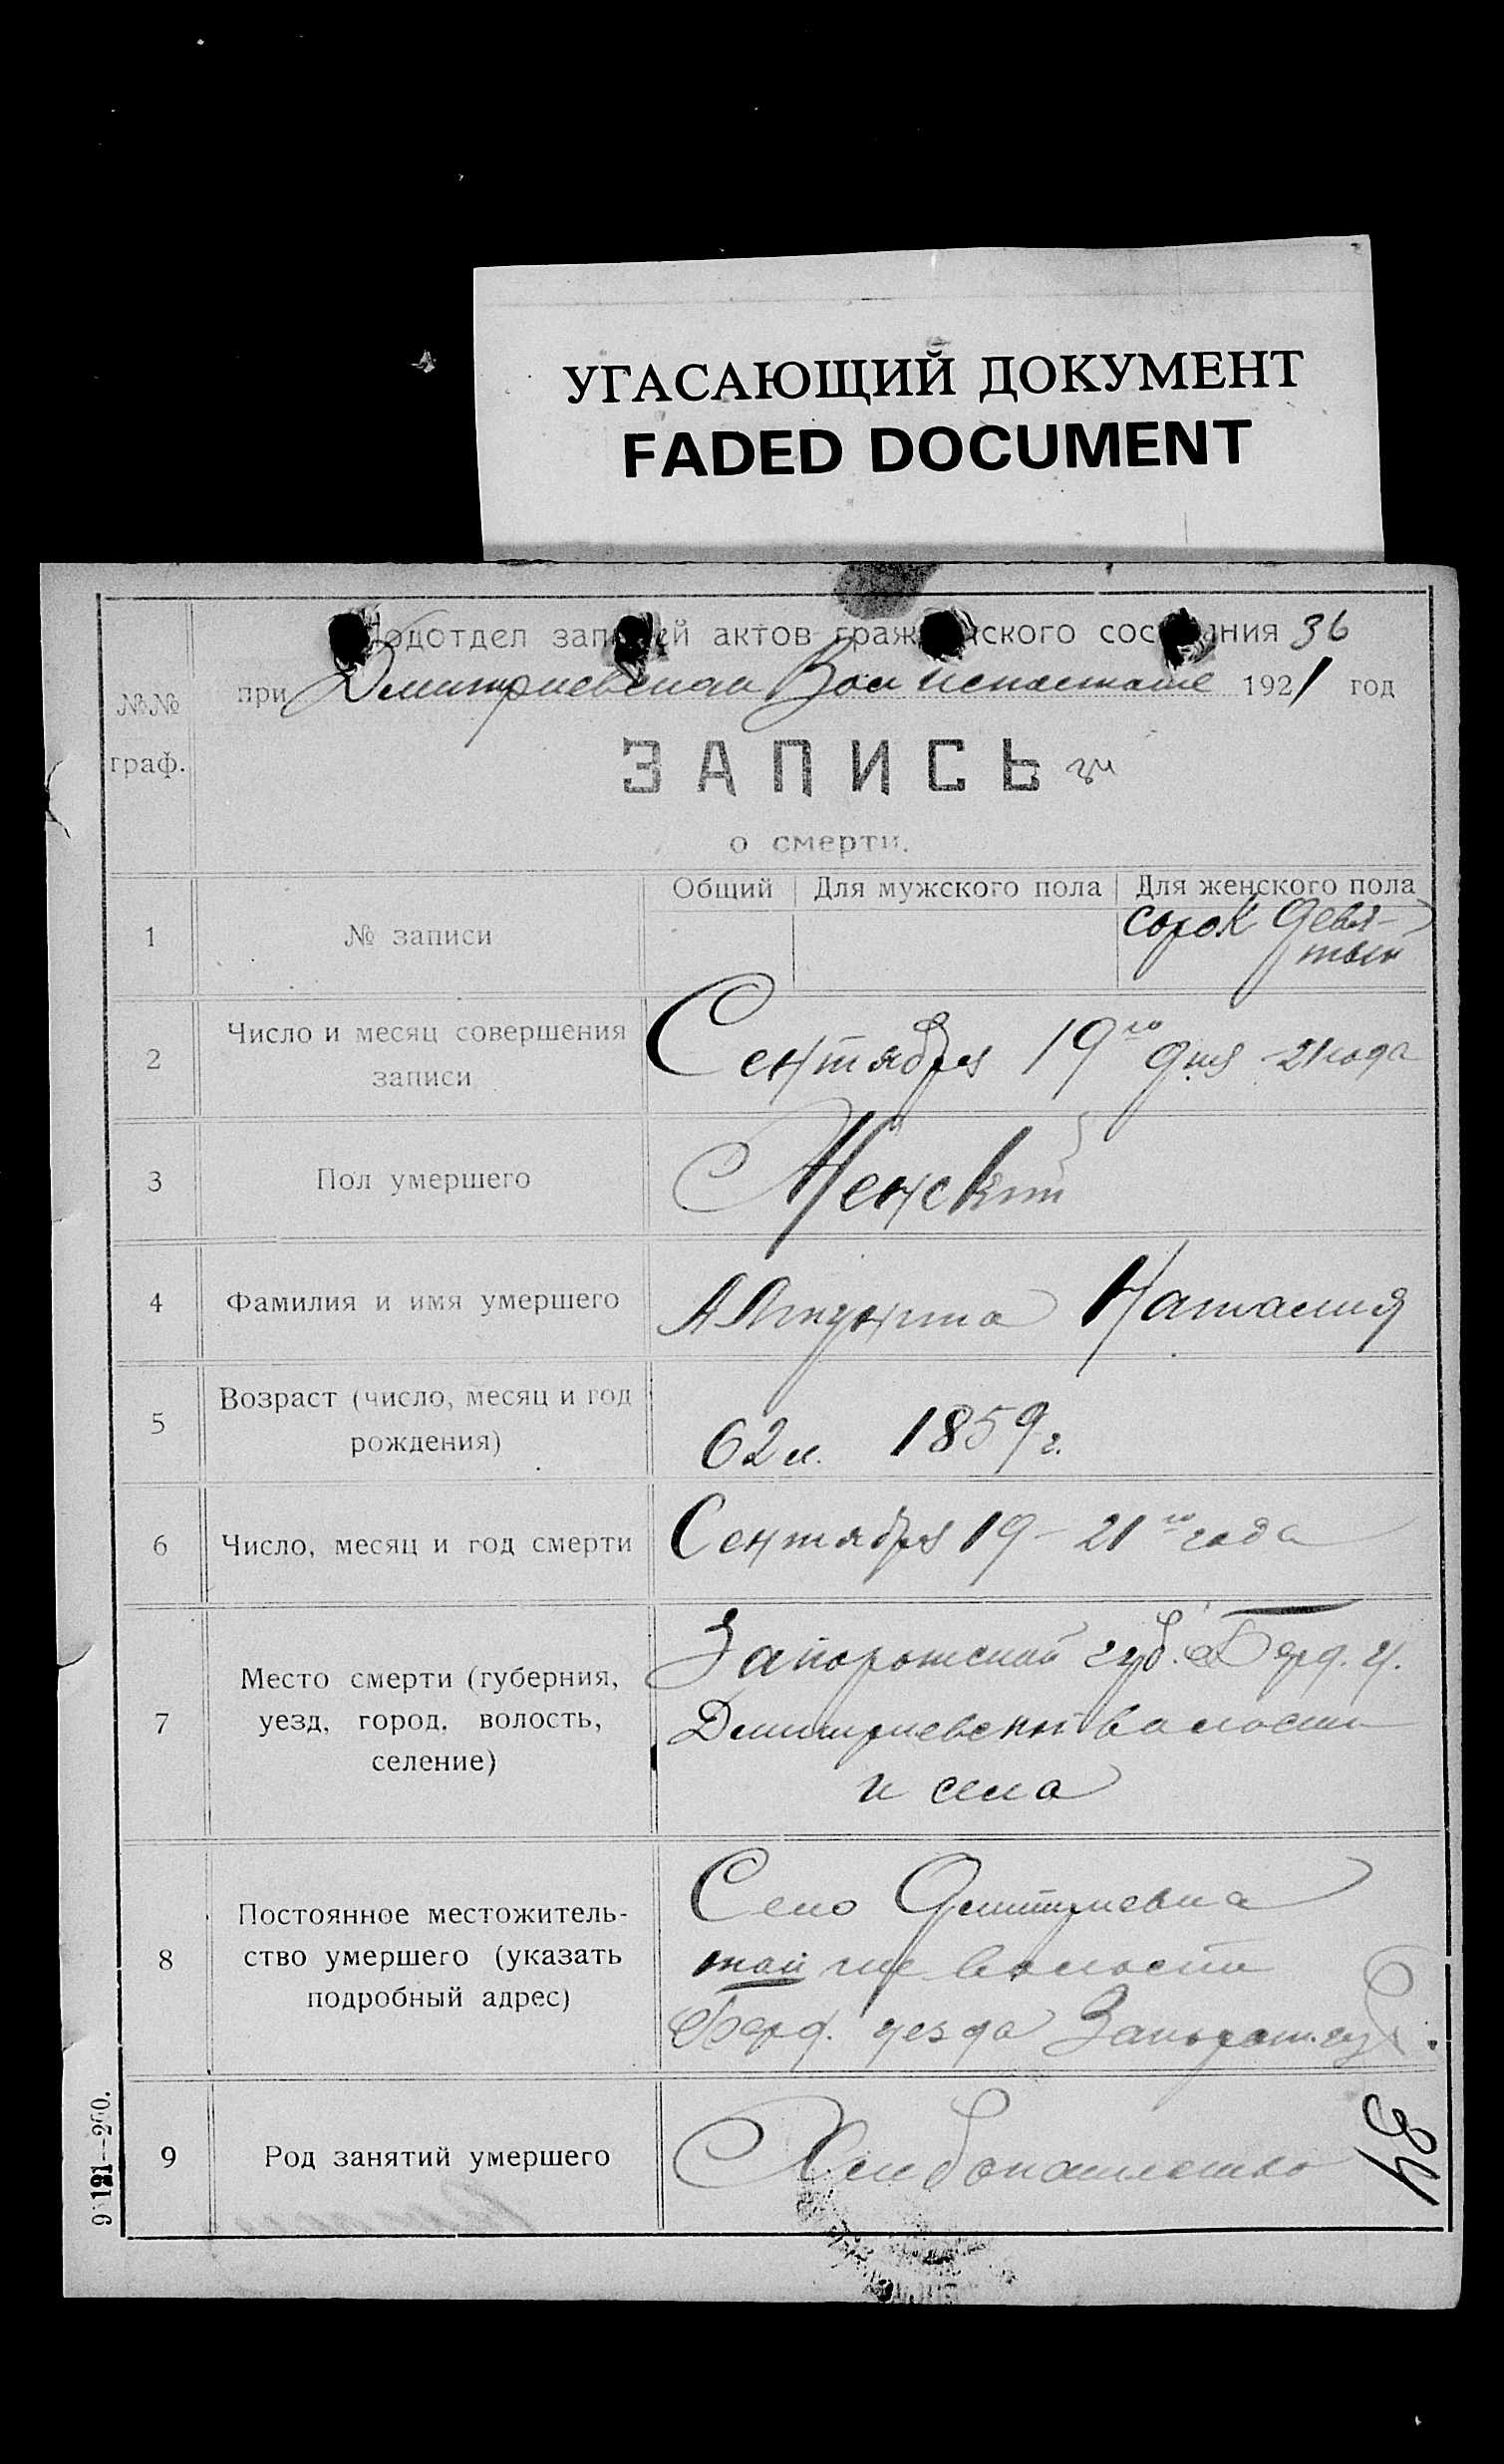 УГАСАЮЩИЙ ДОКУМЕНТ
FADED DOCUMENT
Подотдел записей актов гражданского состояния 36
№№ граф.
при Дмитриевском Волисполкоме 1921 год
ЗАПИСЬ
о смерти.
Общий Для мужского пола Для женского пола
1 № записи сорок девя-
тый
2 Число и месяц совершения
записи
Сентября 19го дня 21 года
3 Пол умершего Женский
4 Фамилия и имя умершего Наталия
5 Возраст (число, месяц и год
рождения)
62 л. 1859 г.
6 Число, месяц и год смерти Сентября 19 - 21го года
7 Место смерти (губерния,
уезд, город, волость,
селение)
Запорожской губ. Берд. у.
Дмитриевской волости
и села
8 Постоянное местожитель-
ство умершего (указать
подробный адрес)
Село Дмитриевка
той же волости
Берд. уезда Запорож. губ.
9 Род занятий умершего Хлебопашество
34